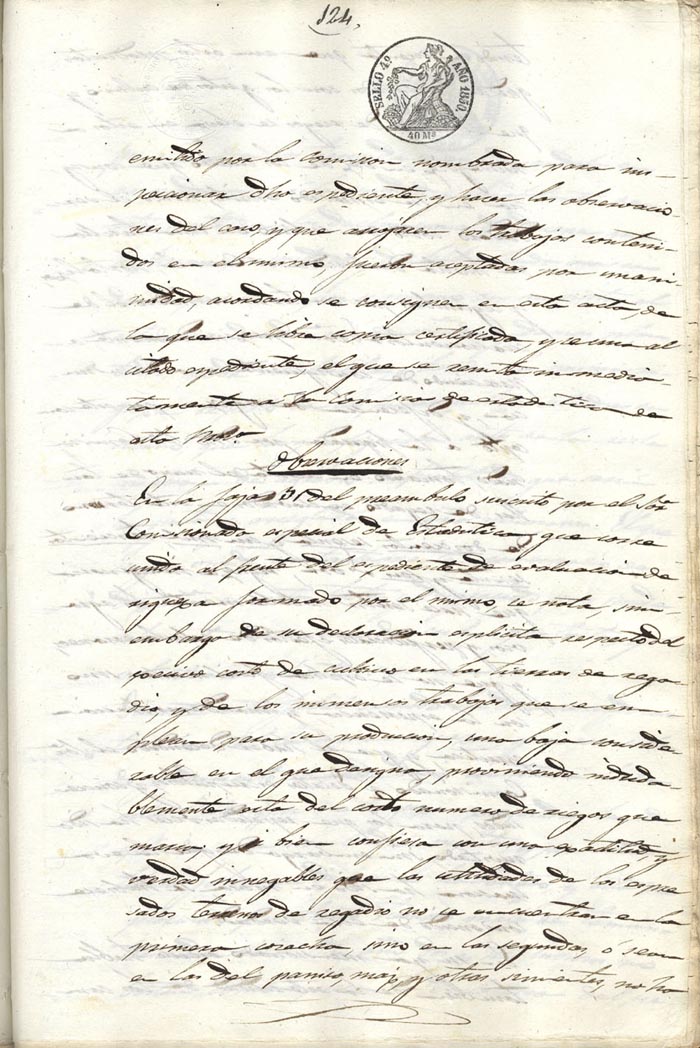 124,
SELLO 4º AÑO 1850.
40 Ms
emitido por la comision nombrada para ins-
peccionar dho espediente, y hacer las observacio
nes del caso, y que arrojen los trabajos conteni-
dos en el mismo, fueron aceptadas por unani-
midad, acordando se consignen en esta acta, de
la que se libre copia certificada, y se una al
citado espediente, el que se remita inmedia-
tamente a la Comision de estadistica de
esta
Observaciones
En la foja 31 del preambulo suscrito por el Sor
Comisionado especial de Estadistica, que corre
unido al frente del espediente de evaluacion de
riqueza formado por el mismo, se nota, sin
embargo de su declaracion esplicita respecto del
escesivo costo de cultivo en las tierras de rega
dio, y de los inmensos trabajos que se em
plean para su produccion, una baja conside
rable en el que designa, proviniendo induda
blemente esta del corto numero de riegos que
marca; y si bien confiesa con una exactitud y
verdad innegables que las utilidades de los espre
sados terrenos de regadio no se encuentran en la
primera cosecha, sino en las segundas, ó sean
en las del panizo, maiz, y otras simientes, no ha